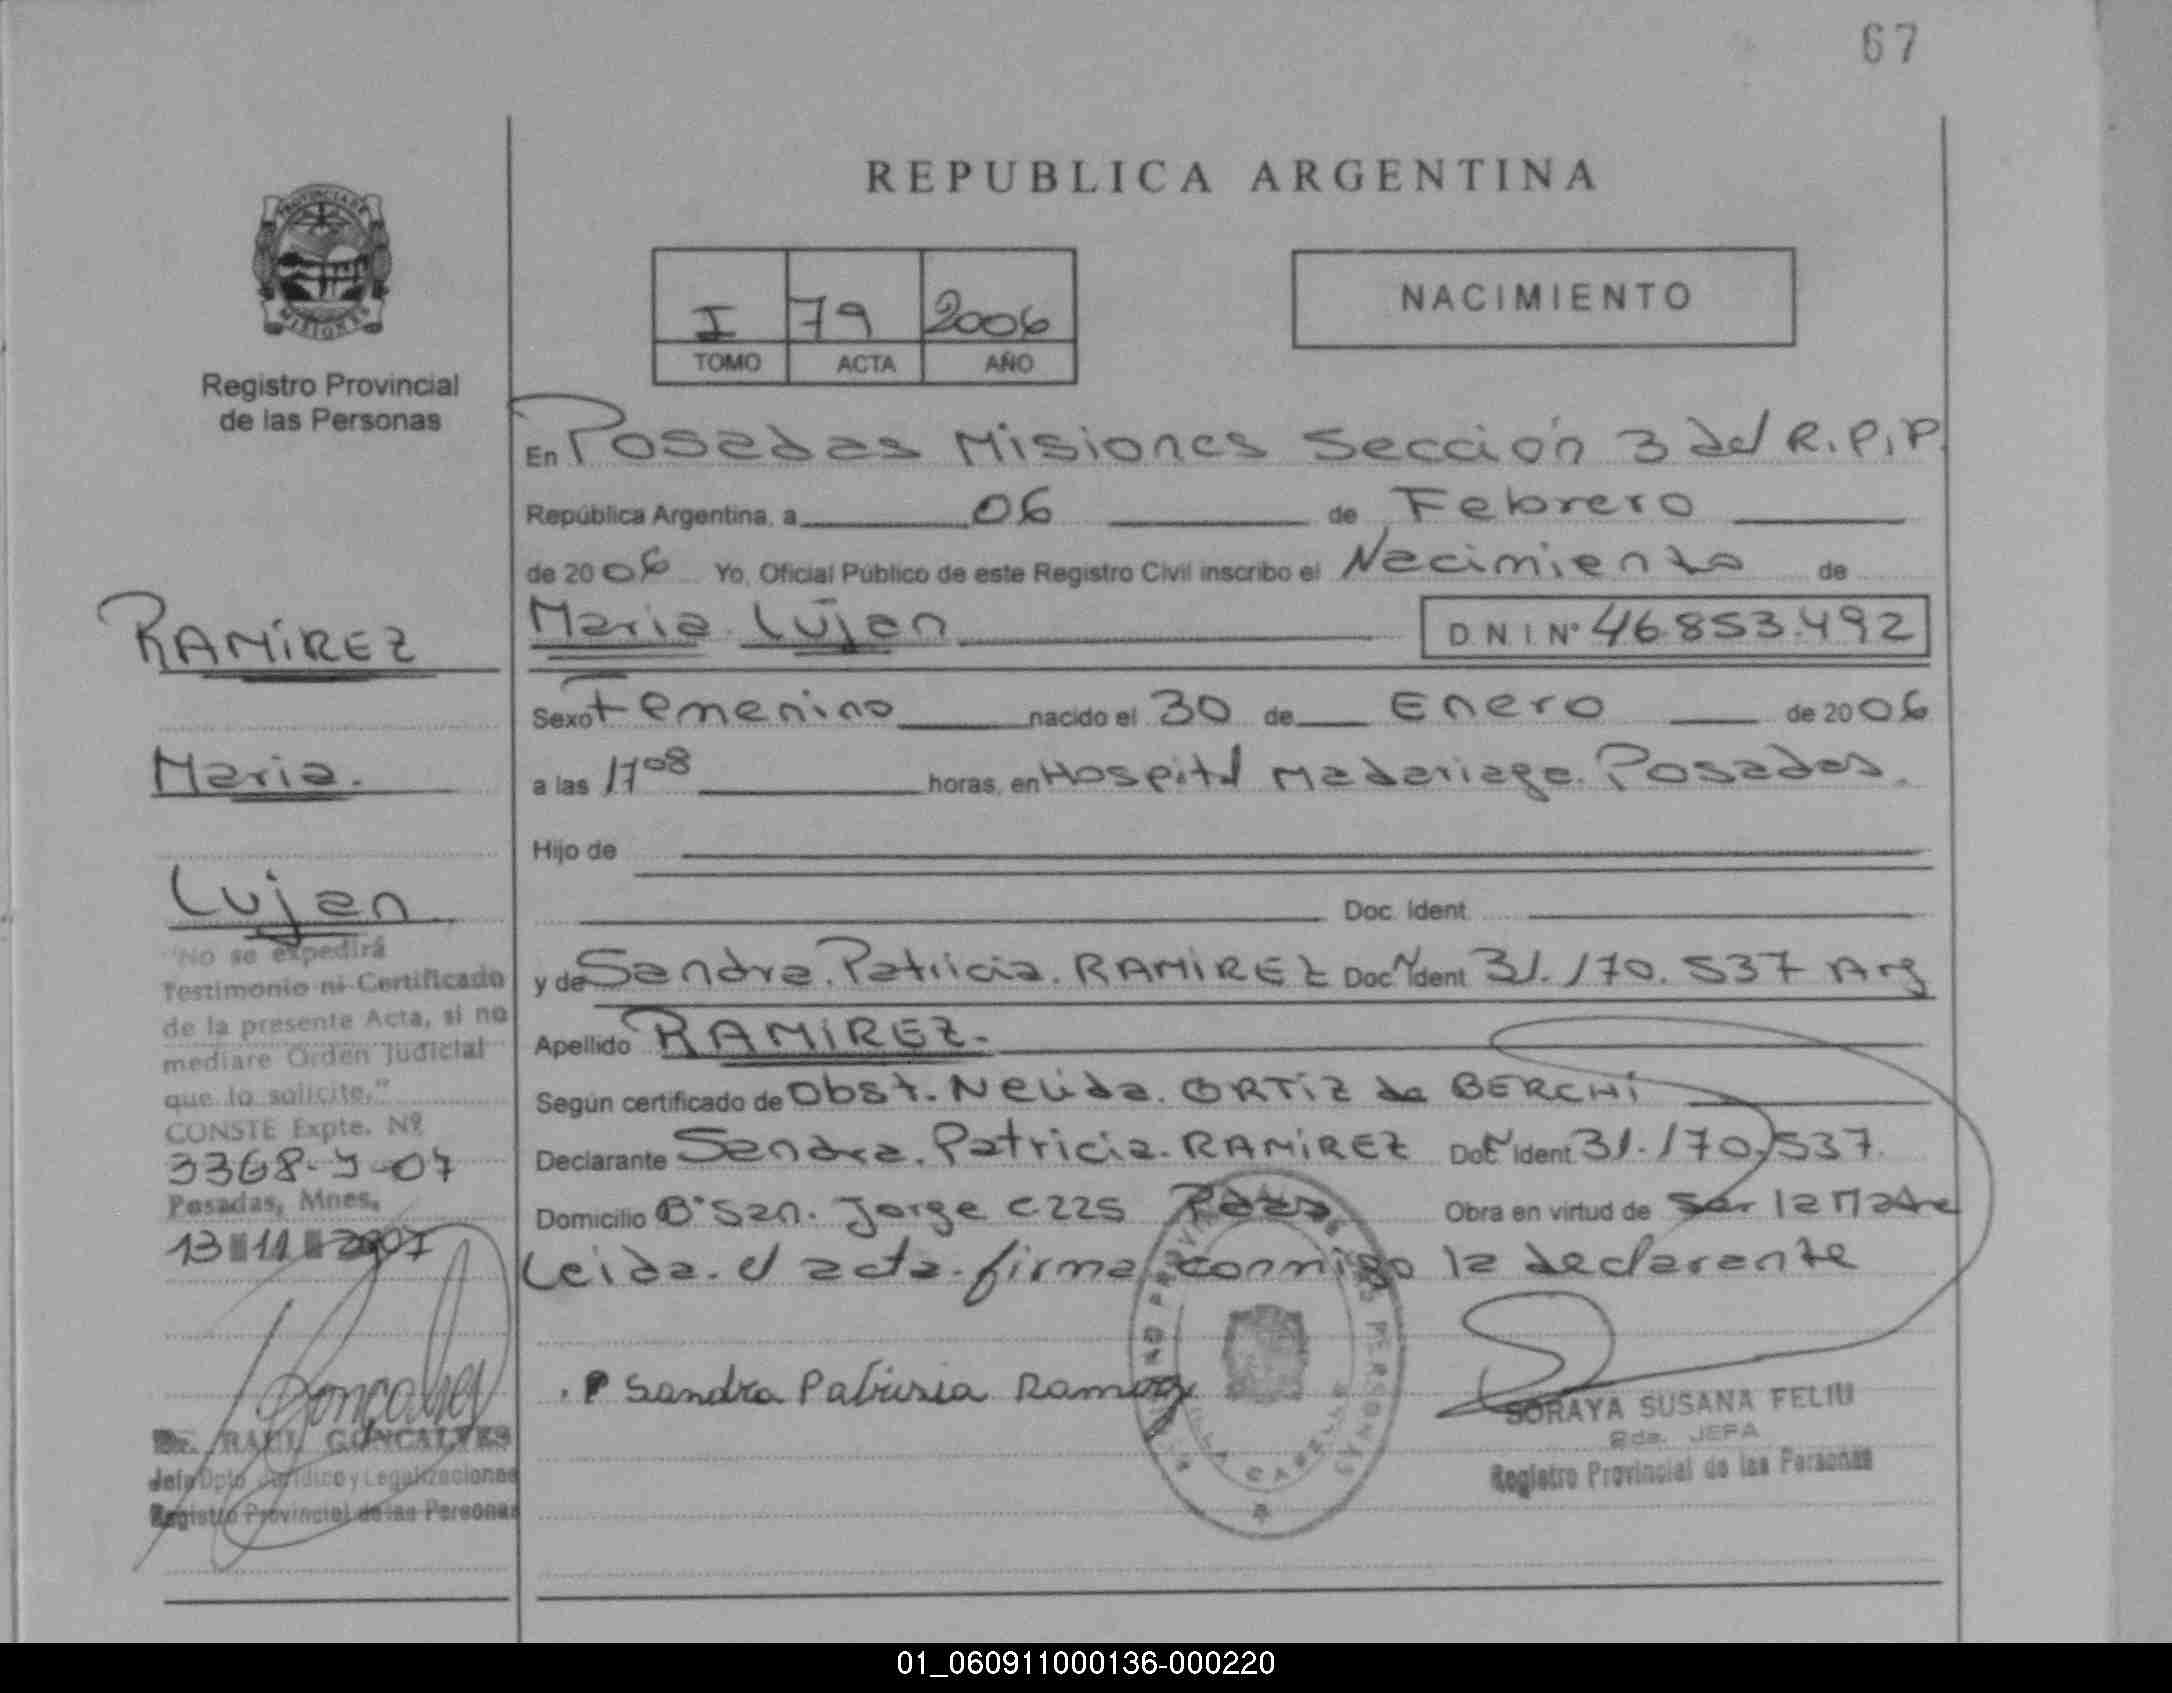 67
REPUBLICA ARGENTINA
PROVINCIA DE
MISIONES
Registro Provincial
de las Personas
I 79 2006
TOMO ACTA AÑO
NACIMIENTO
En Posadas Misiones Sección 3 del R.P.P.
República Argentina, a 06 de Febrero
de 2006 Yo, Oficial Público de este Registro Civil inscribo el Nacimiento de
Maria Lujan D N I N° 46.853.492
Sexo Femenino nacido el 30 de Enero de 2006
a las 17 08 horas, en Hospital Madariaga. Posadas.
Hijo de
Doc. Ident.
y de Sandra. Patricia. RAMIREZ Doc. N° Ident 31.170.537 Arg
Apellido RAMIREZ.
Según certificado de Obst. Nelida. ORTIZ de BERCHI
Declarante Sandra. Patricia. RAMIREZ Doc. N° Ident 31.170.537.
Domicilio B° San. Jorge C225 Obra en virtud de ser la Madre
Leida. el acta. firma conmigo la declarante
RAMÍREZ
Maria.
Lujan
"No se expedirá
Testimonio ni Certificado
de la presente Acta, si no
mediare Orden Judicial
que lo solicite,"
CONSTE Expte. Nº
3368-J-07
Posadas, Mnes,
13 11 2007
Goncalves
Dr. RAUL GONCALVES
Jefe Dpto Jurídico y Legalizaciones
Registro Provincial de las Personas
Sandra Patrisia Ramirez
VILLA CABELLO
SORAYA SUSANA FELIU
2da. JEFA
Registro Provincial de las Personas
01_060911000136-000220